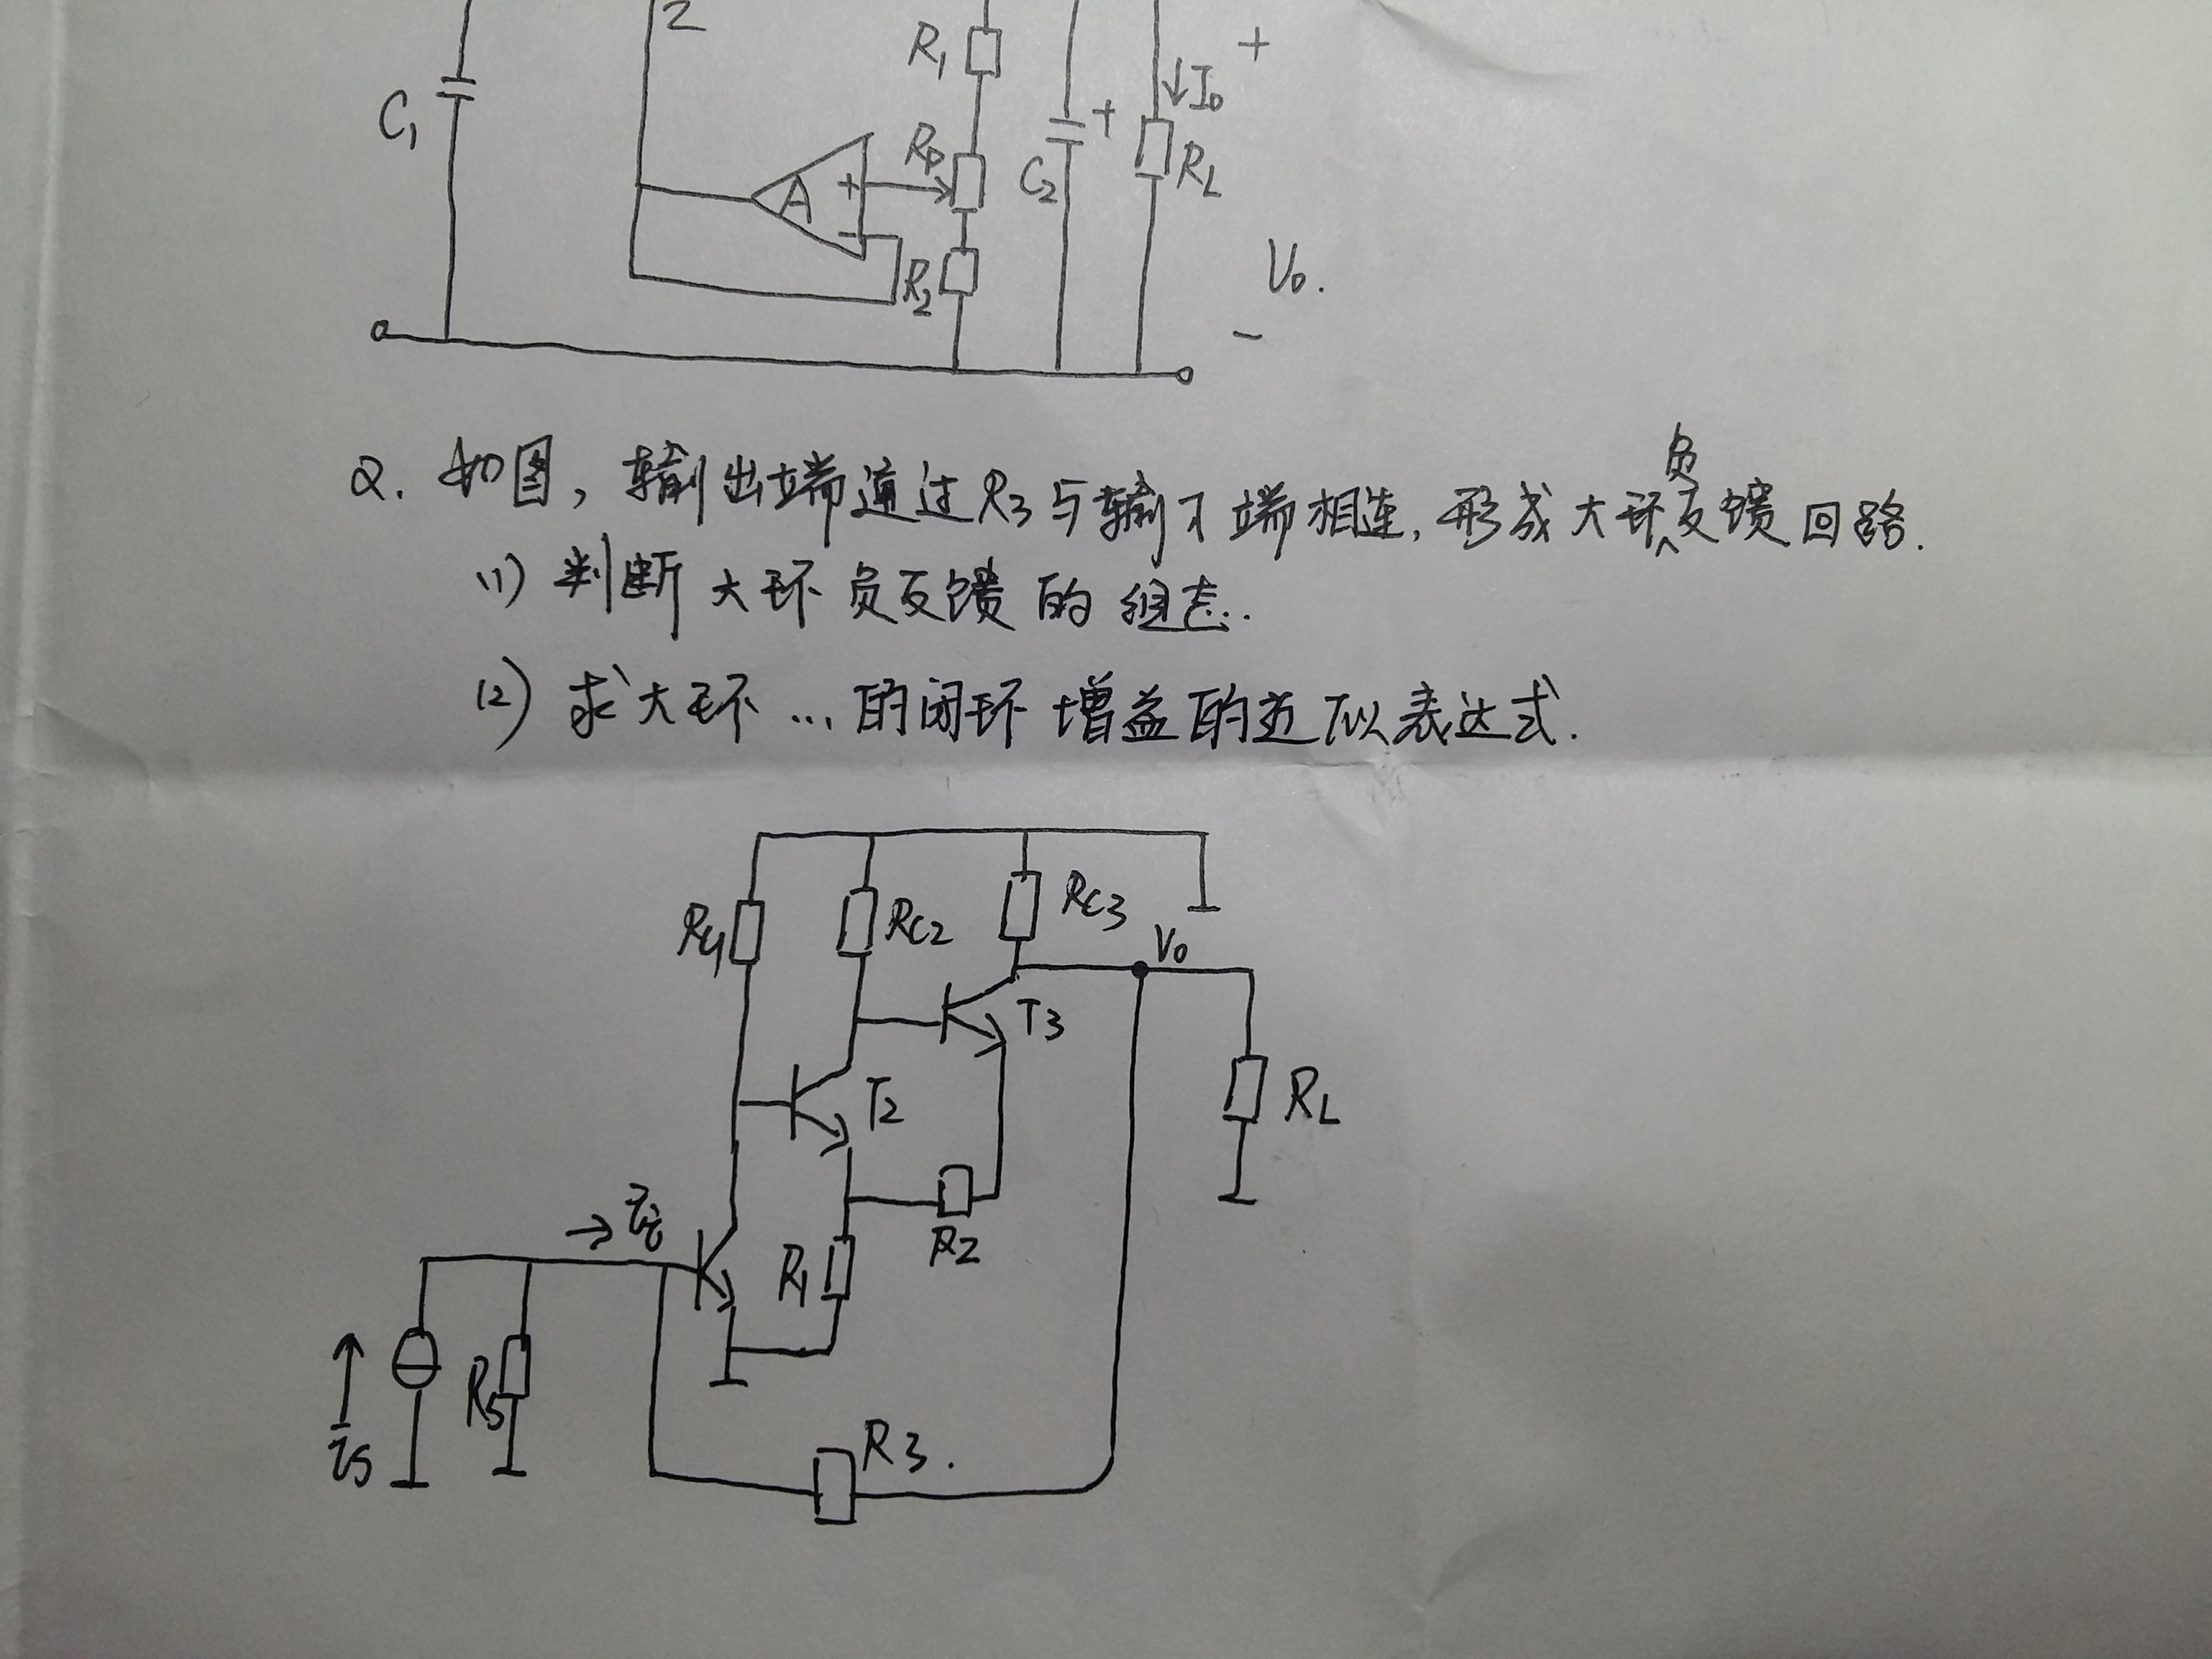 2
R1
+
C1
+
↓I0
RP
A
+
C2
RL
-
R2
V0.
-
2. 如图，输出端通过R3与输入端相连，形成大环负反馈回路.
(1) 判断大环负反馈的组态.
(2) 求大环...的闭环增益的近似表达式.
Rc1
Rc2
Rc3
V0
T3
T2
RL
→ii
R2
R1
↑
RS
is
R3.